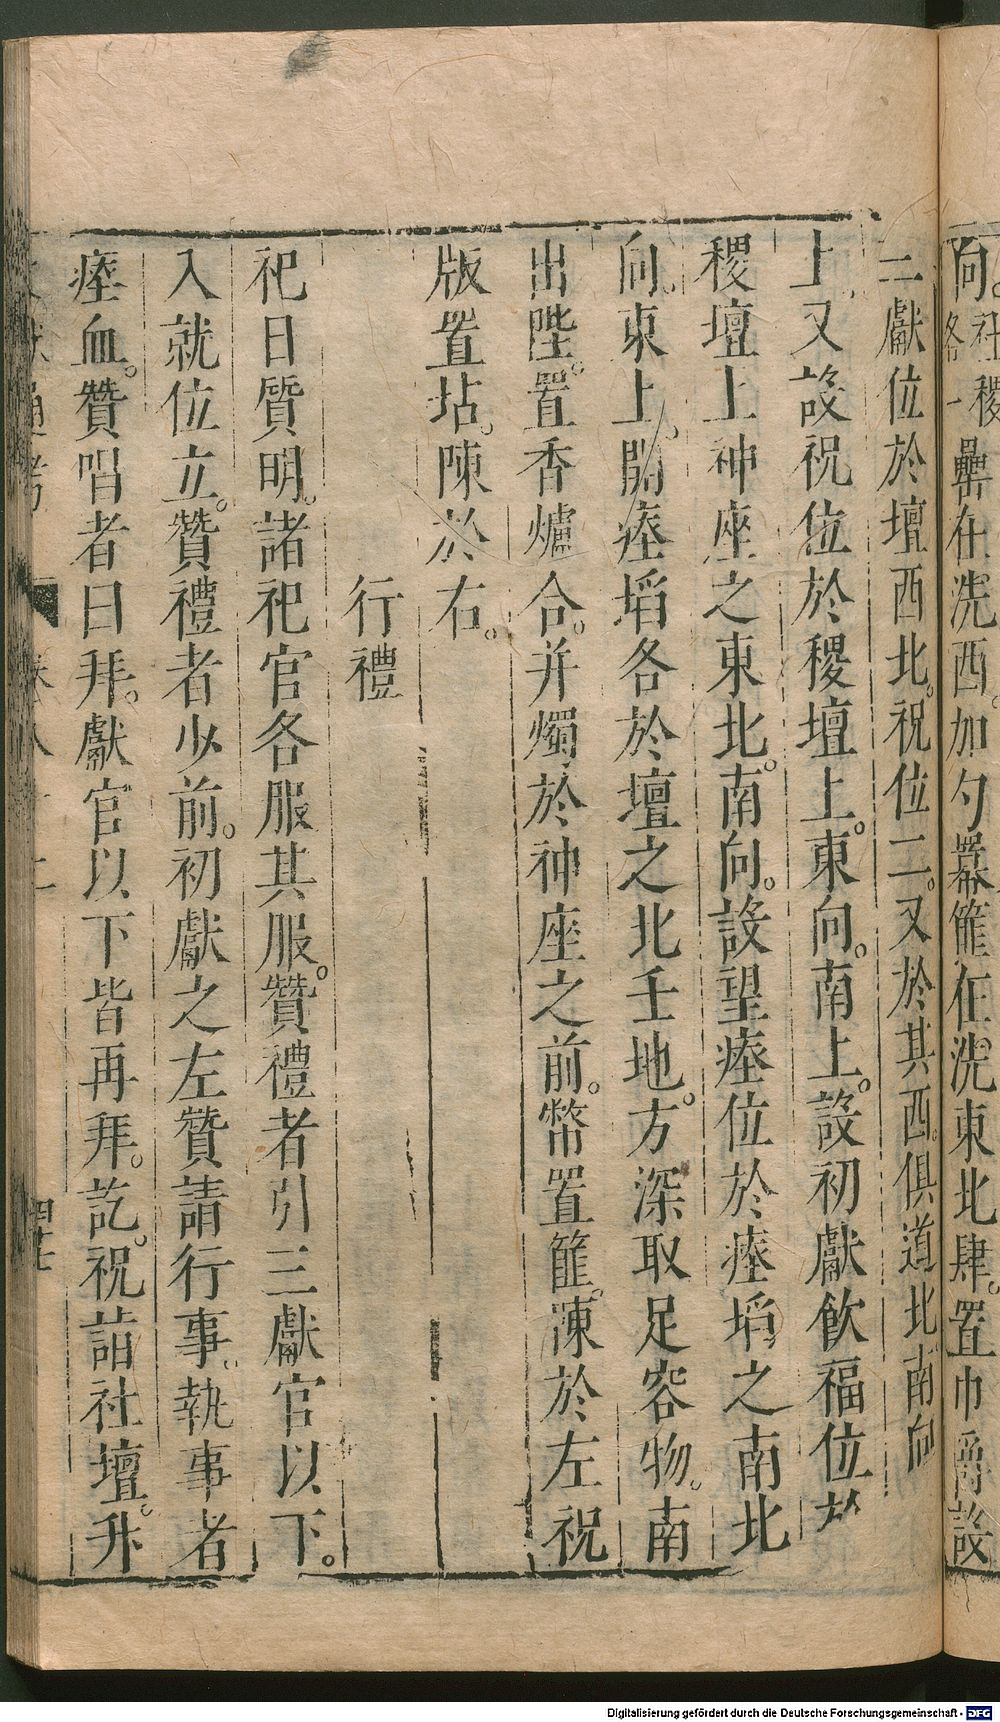 向。社稷
各一罍在洗西。加勺羃。篚在洗東北肆。置巾爵。設
三獻位於壇西北。祝位二。又於其西。俱道北南向
上。又設祝位於稷壇上。東向。南上。設初獻飲福位於
稷壇上神座之東北。南向。設望瘞位於瘞埳之南北
向。東上。開瘞埳各於壇之北壬地。方深取足容物。南
出陛。置香爐合。并燭於神座之前。幣置篚。陳於左祝
版置坫。陳於右。
行禮
祀日質明。諸祀官各服其服。贊禮者引三獻官以下。
入就位立。贊禮者少前。初獻之左贊請行事。執事者
瘞血。贊唱者曰拜。獻官以下皆再拜。訖。祝詣社壇。升
文獻通考 卷八十二 四十七
Digitalisierung gefördert durch die Deutsche Forschungsgemeinschaft - DFG